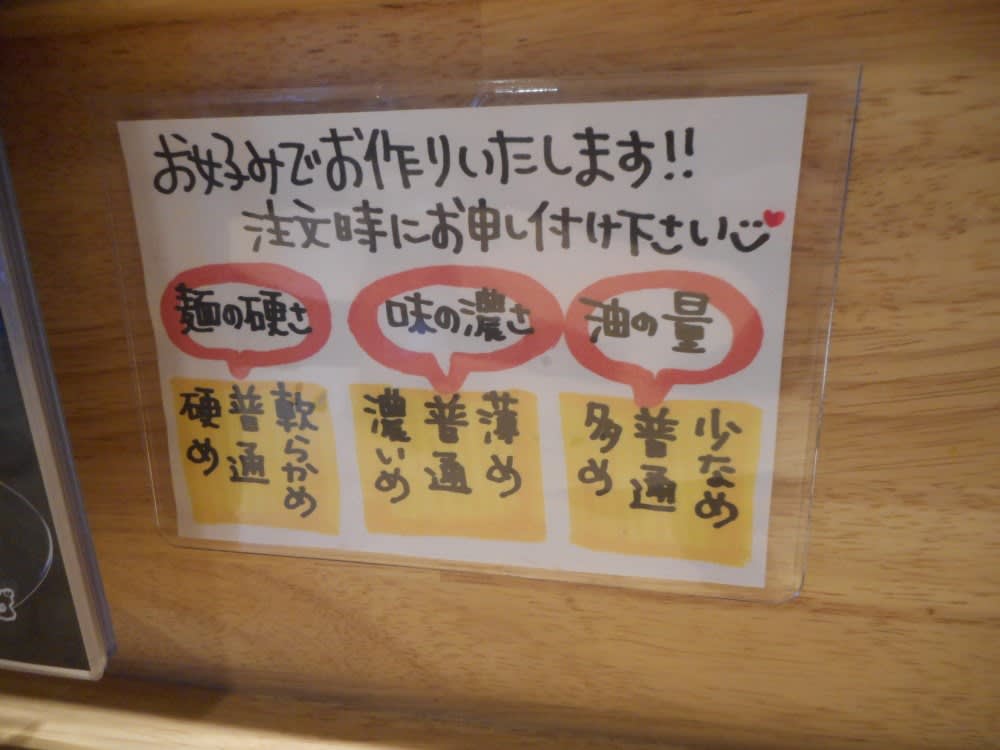 お好みでお作りいたします!!
注文時にお申し付け下さい
麺の硬さ
軟らかめ
普通
硬め
味の濃さ
薄め
普通
濃いめ
油の量
少なめ
普通
多め